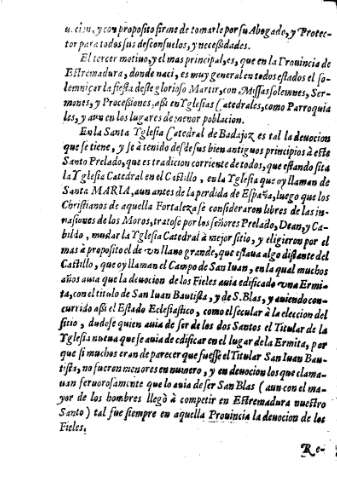 u.cion, y con proposito firme de tomarle por su Abogado, y Protec-
tor para todos sus desconsuelos, y necesidades.
El tercer motiuo, y el mas principal, es, que en la Prouincia de
Estremadura, donde naci, es muy general en todos estados el so-
lemniçar la fiesta deste glorioso Martir, con Missas solemnes, Ser-
mones, y Processiones, assi en Yglesias Catedrales, como Parroquia
les, y aun en los lugares de menor poblacion.
En la Santa Yglesia Catedral de Badajoz es tal la deuocion
que se tiene, y se à tenido desde sus bien antiguos principios à este
Santo Prelado, que es tradicion corriente de todos, que estando sita
la Yglesia Catedral en el Castillo, en la Yglesia que oy llaman de
Santa MARIA, aun antes de la perdida de España, luego que los
Christianos de aquella Fortaleza se consideraron libres de las in-
uasiones de los Moros, tratose por los señores Prelado, Dean, y Ca-
bildo, mudar la Yglesia Catedral à mejor sitio, y eligieron por el
mas à proposito el de vn llano grande, que estaua algo distante del
Castillo, que oy llaman el Campo de San Iuan, en la qual muchos
años auia que la deuocion de los Fieles auia edificado vna Ermi-
ta, con el titulo de San Iuan Bautista, y de S. Blas, y auiendo con-
currido assi el Estado Eclesiastico, como el secular à la eleccion del
sitio, dudose quien auia de ser de los dos Santos el Titular de la
Yglesia nueua que se auia de edificar en el lugar de la Ermita, por
que si muchos eran de parecer que fuesse el Titular San Iuan Bau-
tista, no fueron menores en numero, y en deuocion los que clama-
uan feruorosamente que lo auia de ser San Blas (aun con el ma-
yor de los hombres llegò à competir en Estremadura nuestro
Santo) tal fue siempre en aquella Prouincia la deuocion de los
Fieles.
Re-